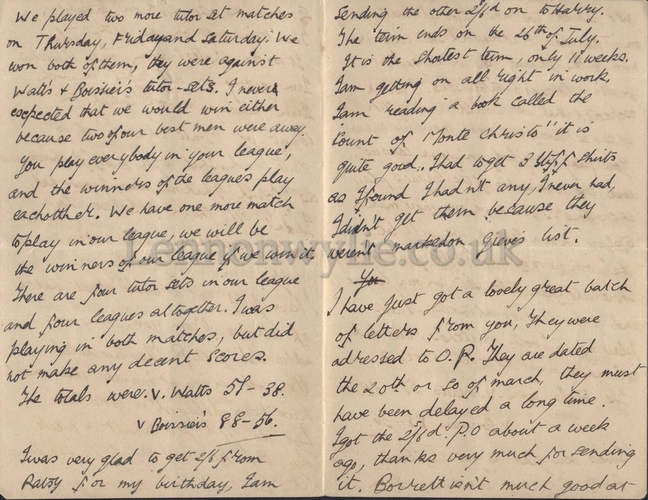 We played two more tutor set matches
on Thursday, Friday and Saturday. We
won both of them, they were against
Watt's & Boissier's tutor-sets. I never
expected that we would win either
because two of our best men were away.
You play everybody in your league,
and the winners of the leagues play
eachother. We have one more match
to play in our league, we will be
the winners of our league if we win it,
There are four tutor sets in our league
and four leagues altogether. I was
playing in both matches, but did
not make any decent scores.
The totals were. V. Watts 51-38.
v Boissier's 88-56.
I was very glad to get 2/6 from
Patsy for my birthday, I am
sending the other 2/6d on to Harry.
The term ends on the 26th of July.
It is the shortest term, only 11 weeks.
I am getting on all right in work,
I am reading a book called the
Count of Monte Christo" it is
quite good. I had to get 3 stiff shirts
as I found I hadn't any, I never had,
I didn't get them because they
weren't marked on Gieve's list.
I have just got a lovely great batch
of letters from you, They were
adressed to O.P. They are dated
the 20th or so of march, they must
have been delayed a long time.
I got the 2/6d P.O about a week
ago, thanks very much for sending
it. Borrett isn't much good at
Lennonwylie.co.uk